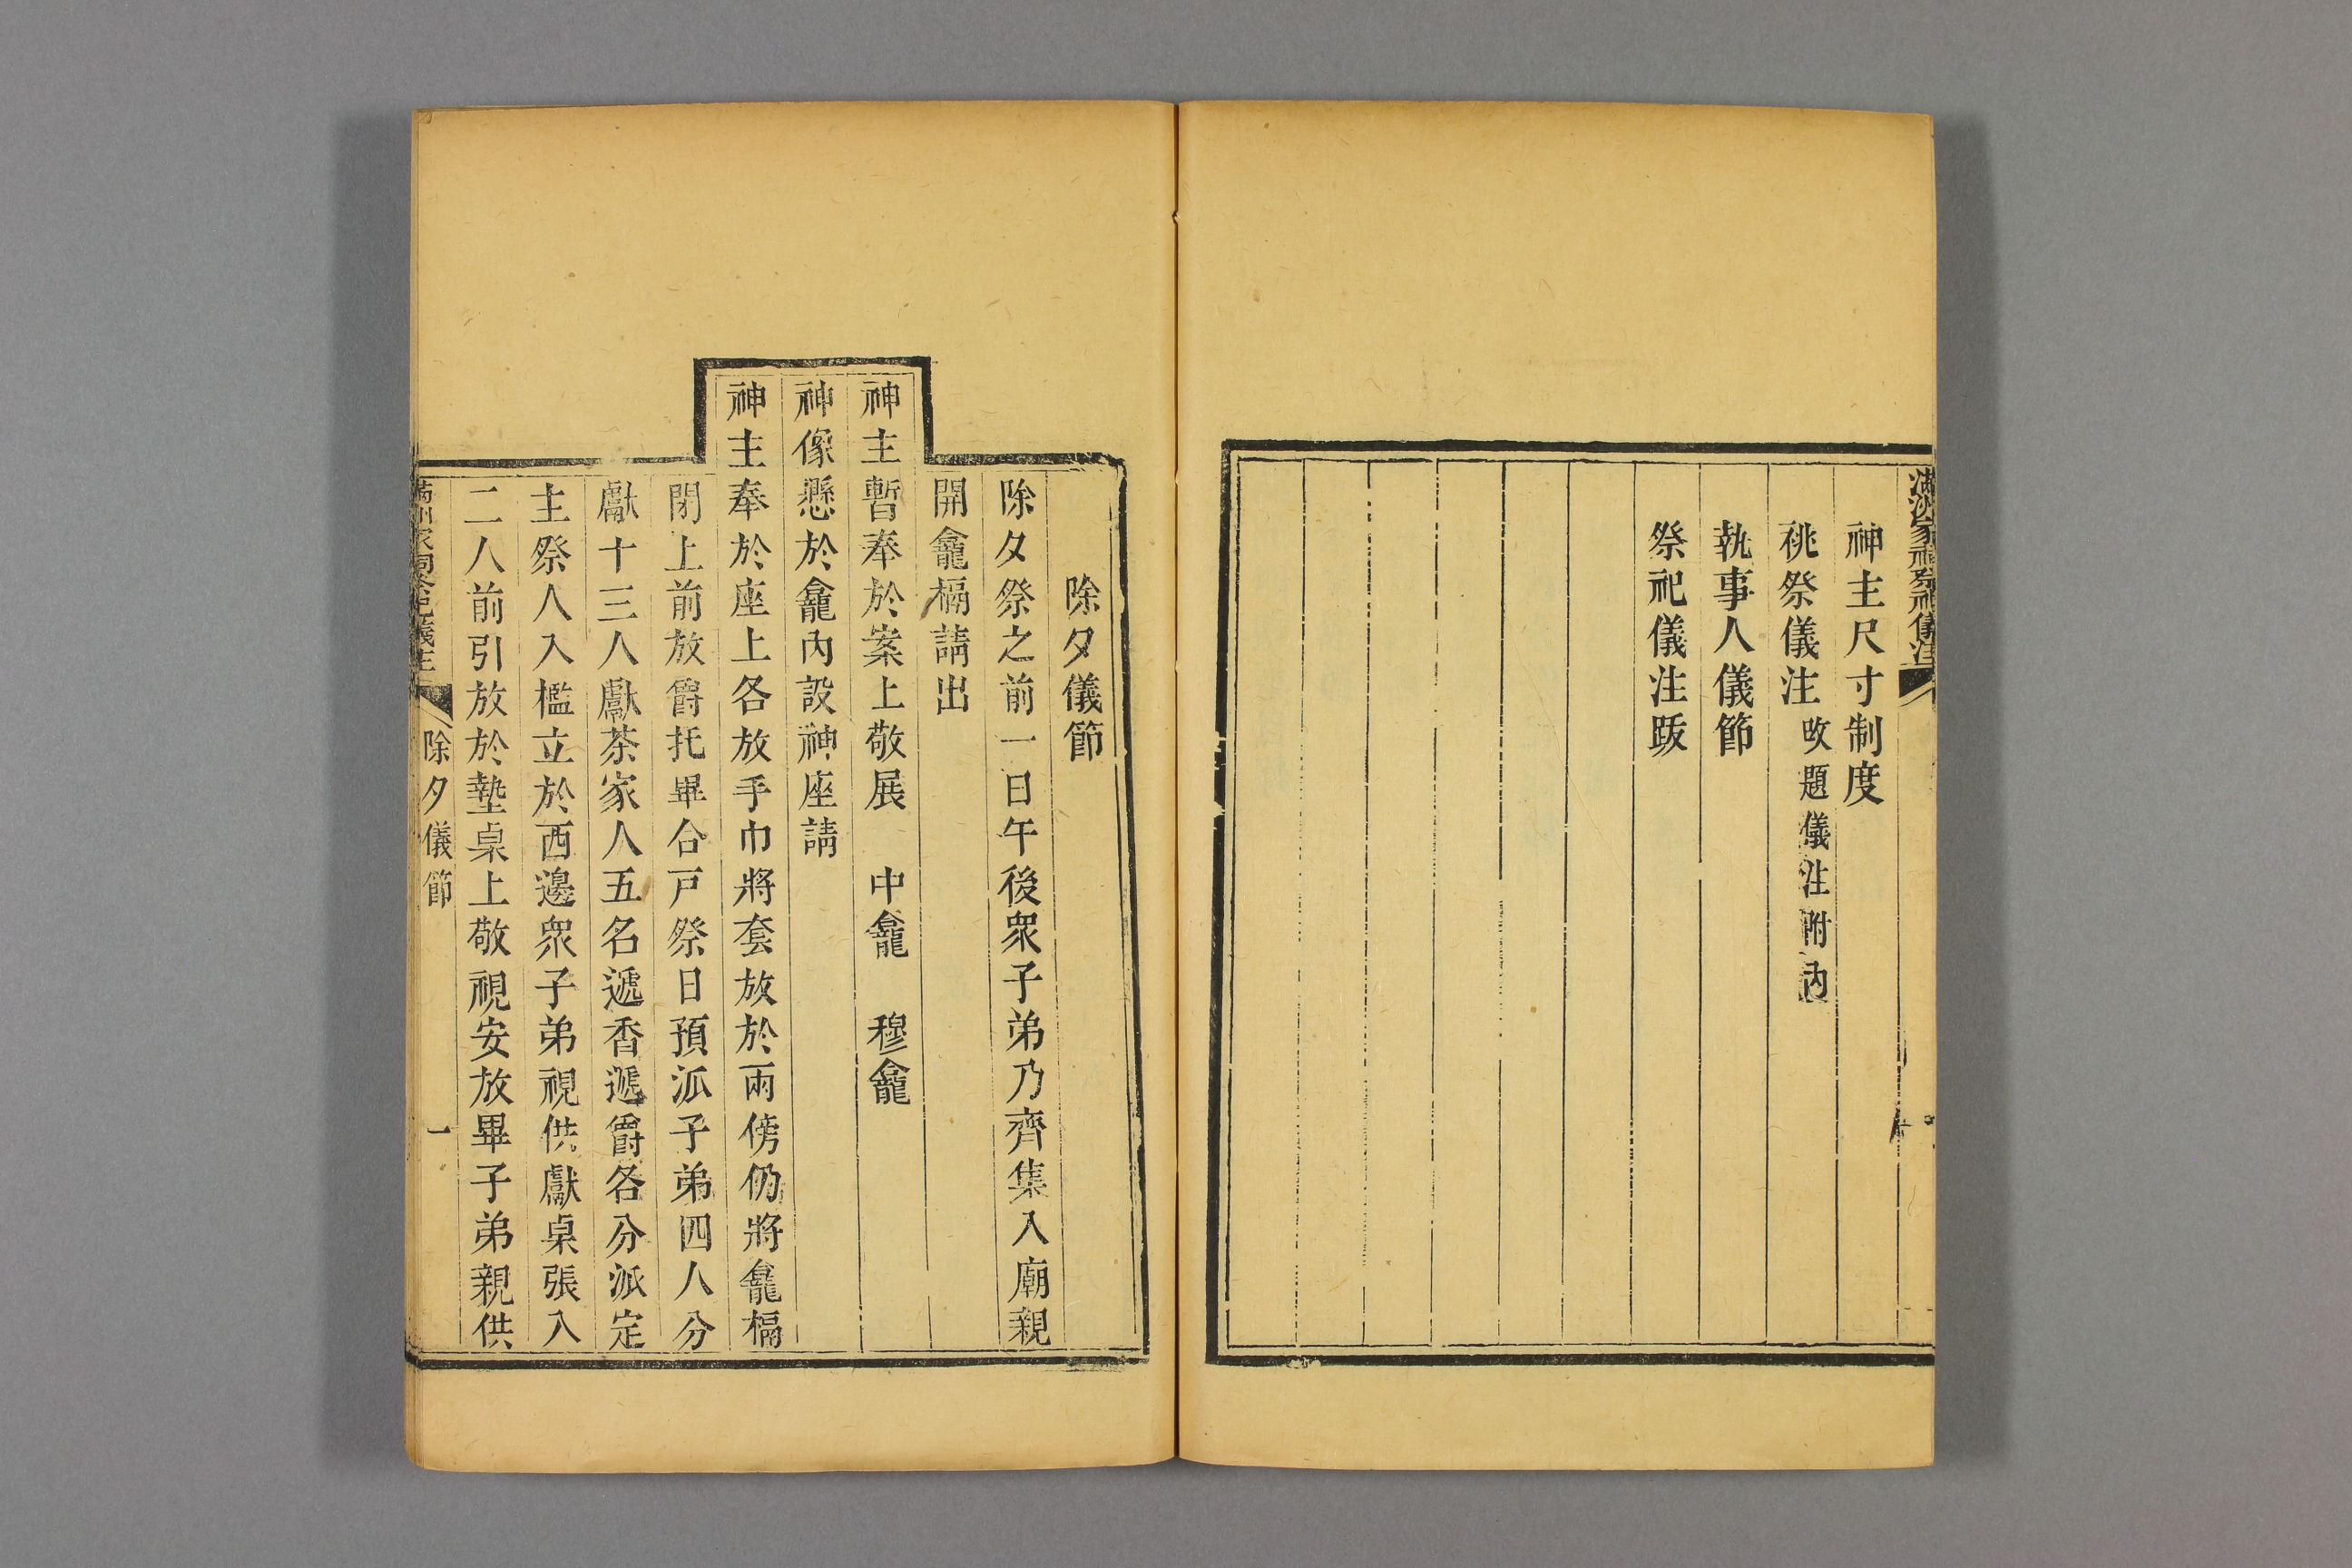 滿洲家祠祭祀儀注
神主尺寸制度
祧祭儀注 改題儀注附內
執事人儀節
祭祀儀注跋
除夕儀節
除夕祭之前一日午後衆子弟乃齊集入廟親
開龕槅請出
神主暫奉於案上敬展 中龕 穆龕
神像懸於龕內設神座請
神主奉於座上各放手巾將套放於兩傍仍將龕槅
閉上前放爵托畢合戸祭日預派子弟四人分
獻十三人獻茶家人五名遞香遞爵各分派定
主祭人入檻立於西邊衆子弟視供獻桌張入
二人前引放於墊桌上敬視安放畢子弟親供
滿洲家祠祭祀儀注
除夕儀節
一